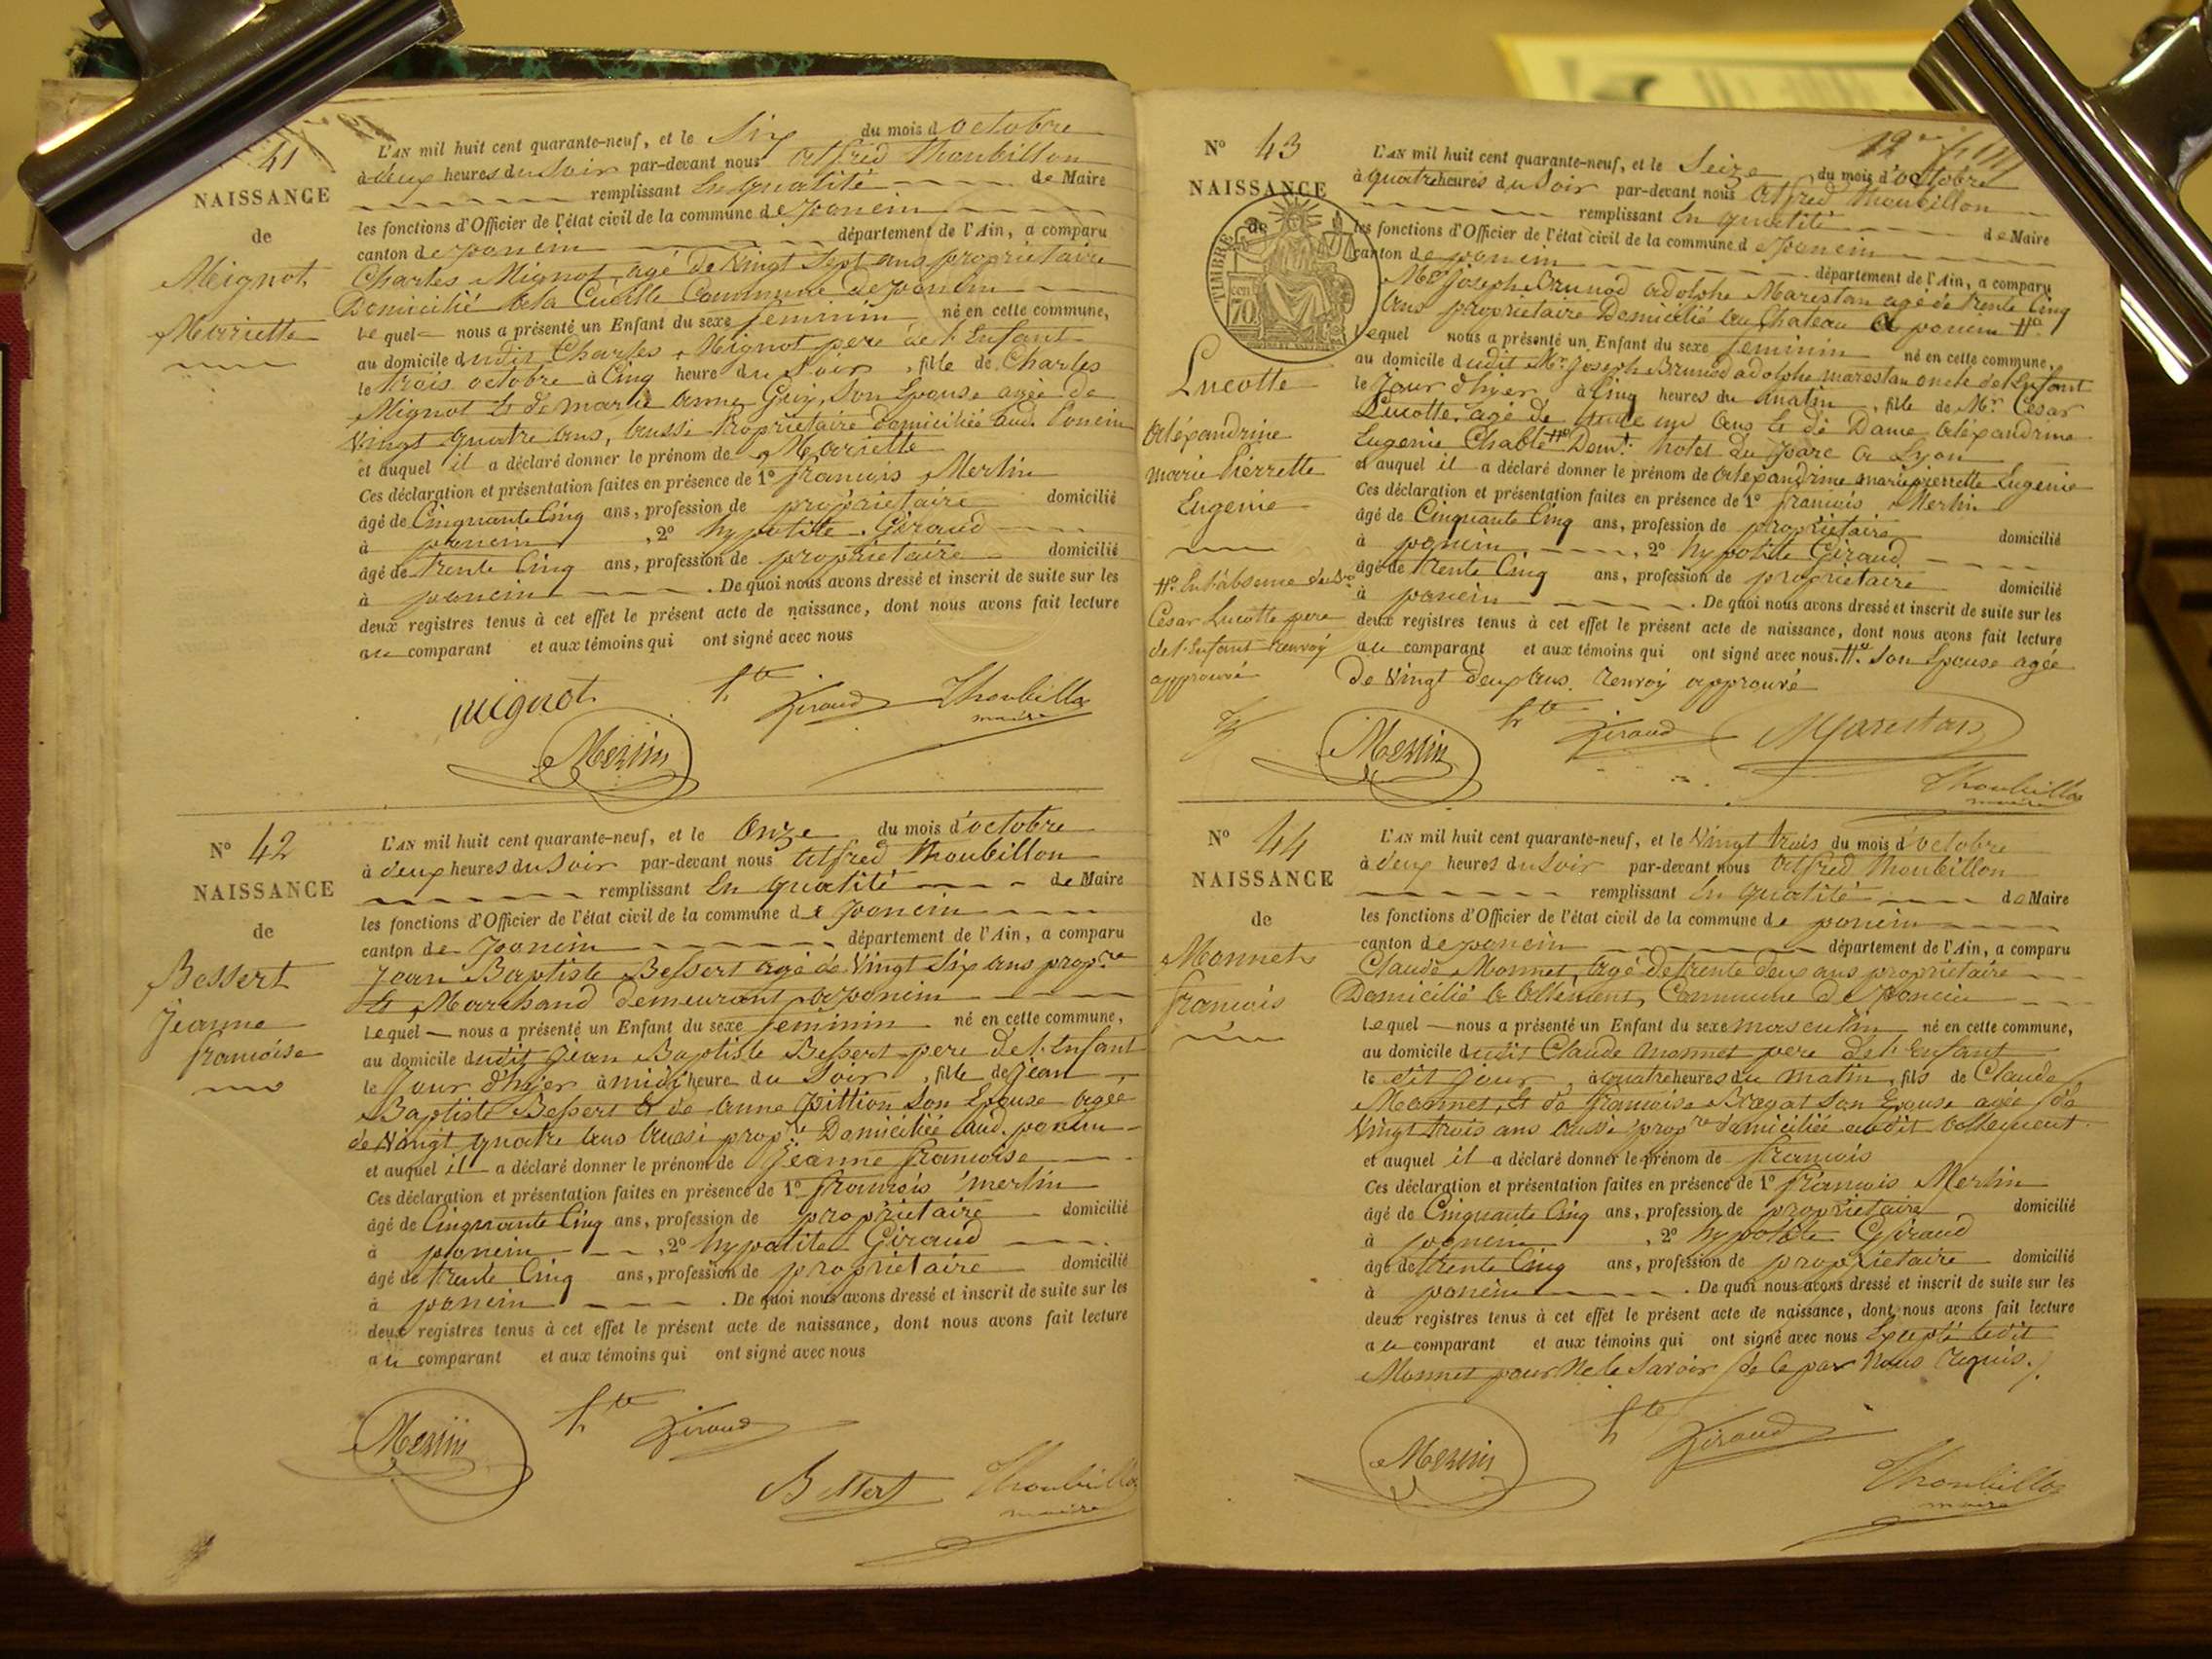 41
NAISSANCE
de
Mignot
Marriette
L'AN mil huit cent quarante-neuf, et le Six du mois d'octobre
à deux heures du Soir par-devant nous Alfred Thoubillon
remplissant En qualité de Maire
les fonctions d'Officier de l'état civil de la commune de poncin
canton de poncin département de l'Ain, a comparu
Charles Mignot, agé de Vingt Sept ans propriétaire
Domicilié à la Cueille Commune de poncin
Lequel nous a présenté un Enfant du sexe feminin né en cette commune,
au domicile dudit Charles Mignot pere de l'Enfant
le trois octobre à Cinq heure du Soir, fille de Charles
Mignot Et de marie anne Guy, Son Epouse agée de
Vingt quatre ans, aussi Propriétaire domiciliée aud. Poncin
et auquel il a déclaré donner le prénom de Marriette
Ces déclaration et présentation faites en présence de 1° francois Merlin
âgé de Cinquante Cinq ans, profession de propriétaire domicilié
à poncin, 2° hypolite Géraud
âgé de trente Cinq ans, profession de propriétaire domicilié
à poncin. De quoi nous avons dressé et inscrit de suite sur les
deux registres tenus à cet effet le présent acte de naissance, dont nous avons fait lecture
au comparant et aux témoins qui ont signé avec nous
mignot hte Giraud Thoubillon
maire
Merlin
N° 42
NAISSANCE
de
Bessert
Jeanne
francoise
L'AN mil huit cent quarante-neuf, et le Onze du mois d'octobre
à deux heures du Soir par-devant nous Alfred Thoubillon
remplissant En qualité de Maire
les fonctions d'Officier de l'état civil de la commune de poncin
canton de poncin département de l'Ain, a comparu
Jean Baptiste Bessert agé de Vingt Six ans propre
Et Marchand demeurant a poncin
Lequel nous a présenté un Enfant du sexe feminin né en cette commune,
au domicile dudit Jean Baptiste Bessert pere de l'Enfant
le Jour d'hier à midi heure du Soir, fille de Jean
Baptiste Bessert Et de anne Pittion Son Epouse agée
de Vingt quatre ans aussi propre Domiciliée aud. poncin
et auquel il a déclaré donner le prénom de Jeanne francoise
Ces déclaration et présentation faites en présence de 1° francois merlin
âgé de Cinquante Cinq ans, profession de propriétaire domicilié
à poncin, 2° hypolite Giraud
âgé de trente Cinq ans, profession de propriétaire domicilié
à poncin. De quoi nous avons dressé et inscrit de suite sur les
deux registres tenus à cet effet le présent acte de naissance, dont nous avons fait lecture
au comparant et aux témoins qui ont signé avec nous
Merlin hte Giraud
Bessert Thoubillon
maire
N° 43
NAISSANCE
de
TIMBRE
70
Lucotte
Aléxandrine
marie Pierrette
Eugenie
L'AN mil huit cent quarante-neuf, et le Seize du mois d'octobre
à quatre heures du Soir par-devant nous Alfred Thoubillon
remplissant En qualité de Maire
les fonctions d'Officier de l'état civil de la commune de poncin
canton de poncin département de l'Ain, a comparu
Mr Joseph Brunod adolphe Marestan agé de trente Cinq
ans propriétaire Domicilié au Chateau de poncin
Lequel nous a présenté un Enfant du sexe feminin né en cette commune,
au domicile dudit Mr Joseph Brunod adolphe marestan oncle de l'Enfant
le Jour d'hyer à Cinq heures du matin, fille de Mr César
Lucotte, agé de trente un ans Et de Dame aléxandrine
Eugenie Chablé Demt. hotel du parc a Lyon
et auquel il a déclaré donner le prénom de aléxandrine marie pierrette Eugenie
Ces déclaration et présentation faites en présence de 1° francois Merlin
âgé de Cinquante Cinq ans, profession de propriétaire domicilié
à poncin, 2° hypolite Géraud
âgé de trente Cinq ans, profession de propriétaire domicilié
à poncin. De quoi nous avons dressé et inscrit de suite sur les
deux registres tenus à cet effet le présent acte de naissance, dont nous avons fait lecture
au comparant et aux témoins qui ont signé avec nous. Son Epouse agée
de Vingt Deux ans. renvoy approuvé
En l'absence du Sr
César Lucotte pere
de l'Enfant renvoy
approuvé
Merlin hte Giraud Marestan
Thoubillon
maire
N° 44
NAISSANCE
de
Monnet
francois
L'AN mil huit cent quarante-neuf, et le Vingt trois du mois d'octobre
à deux heures du Soir par-devant nous Alfred Thoubillon
remplissant En qualité de Maire
les fonctions d'Officier de l'état civil de la commune de poncin
canton de poncin département de l'Ain, a comparu
Claude Monnet, agé de trente deux ans propriétaire
Domicilié a allement, Commune de Poncin
Lequel nous a présenté un Enfant du sexe masculin né en cette commune,
au domicile dudit Claude monnet pere de l'Enfant
le dit Jour, à quatre heures du matin, fils de Claude
Monnet, Et de francoise Bragat Son Epouse agée de
Vingt trois ans aussi propre domiciliée audit allement
et auquel il a déclaré donner le prénom de francois
Ces déclaration et présentation faites en présence de 1° francois Merlin
âgé de Cinquante Cinq ans, profession de propriétaire domicilié
à poncin, 2° hypolite Géraud
âgé de trente Cinq ans, profession de propriétaire domicilié
à poncin. De quoi nous avons dressé et inscrit de suite sur les
deux registres tenus à cet effet le présent acte de naissance, dont nous avons fait lecture
au comparant et aux témoins qui ont signé avec nous Excepté ledit
Monnet pour ne le Savoir de ce par Nous requis.
Merlin hte Giraud
Thoubillon
maire